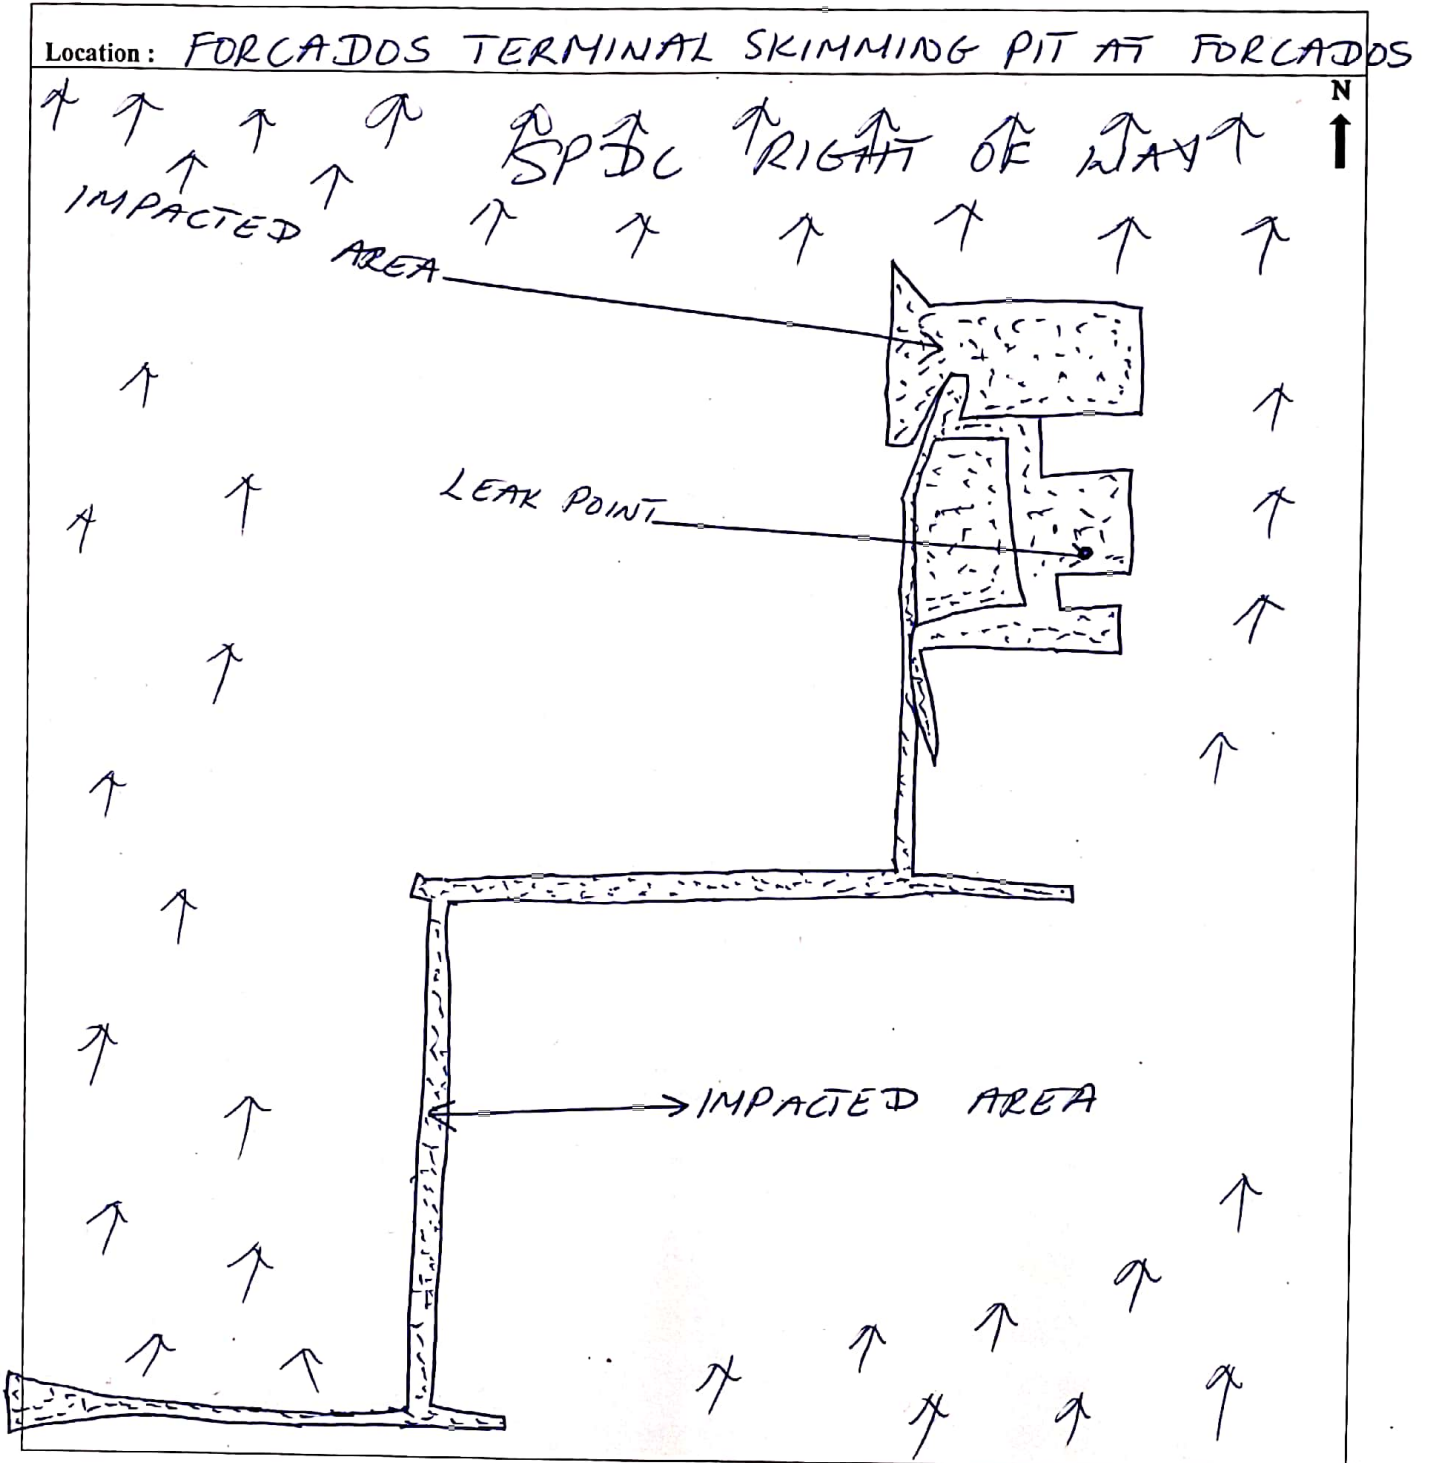 Location : FORCADOS TERMINAL SKIMMING PIT AT FORCADOS
N
SPDC RIGHT OF WAY
IMPACTED AREA
LEAK POINT
IMPACTED AREA